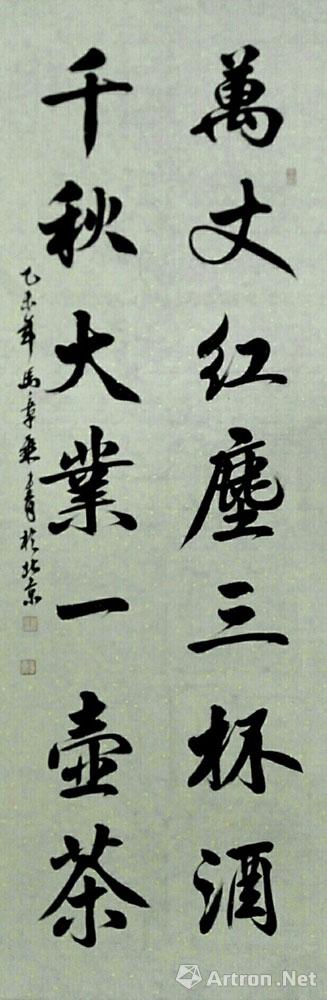 萬丈红塵三杯酒
千秋大業一壺茶
乙未年馬章乘書於北京
Artron.Net